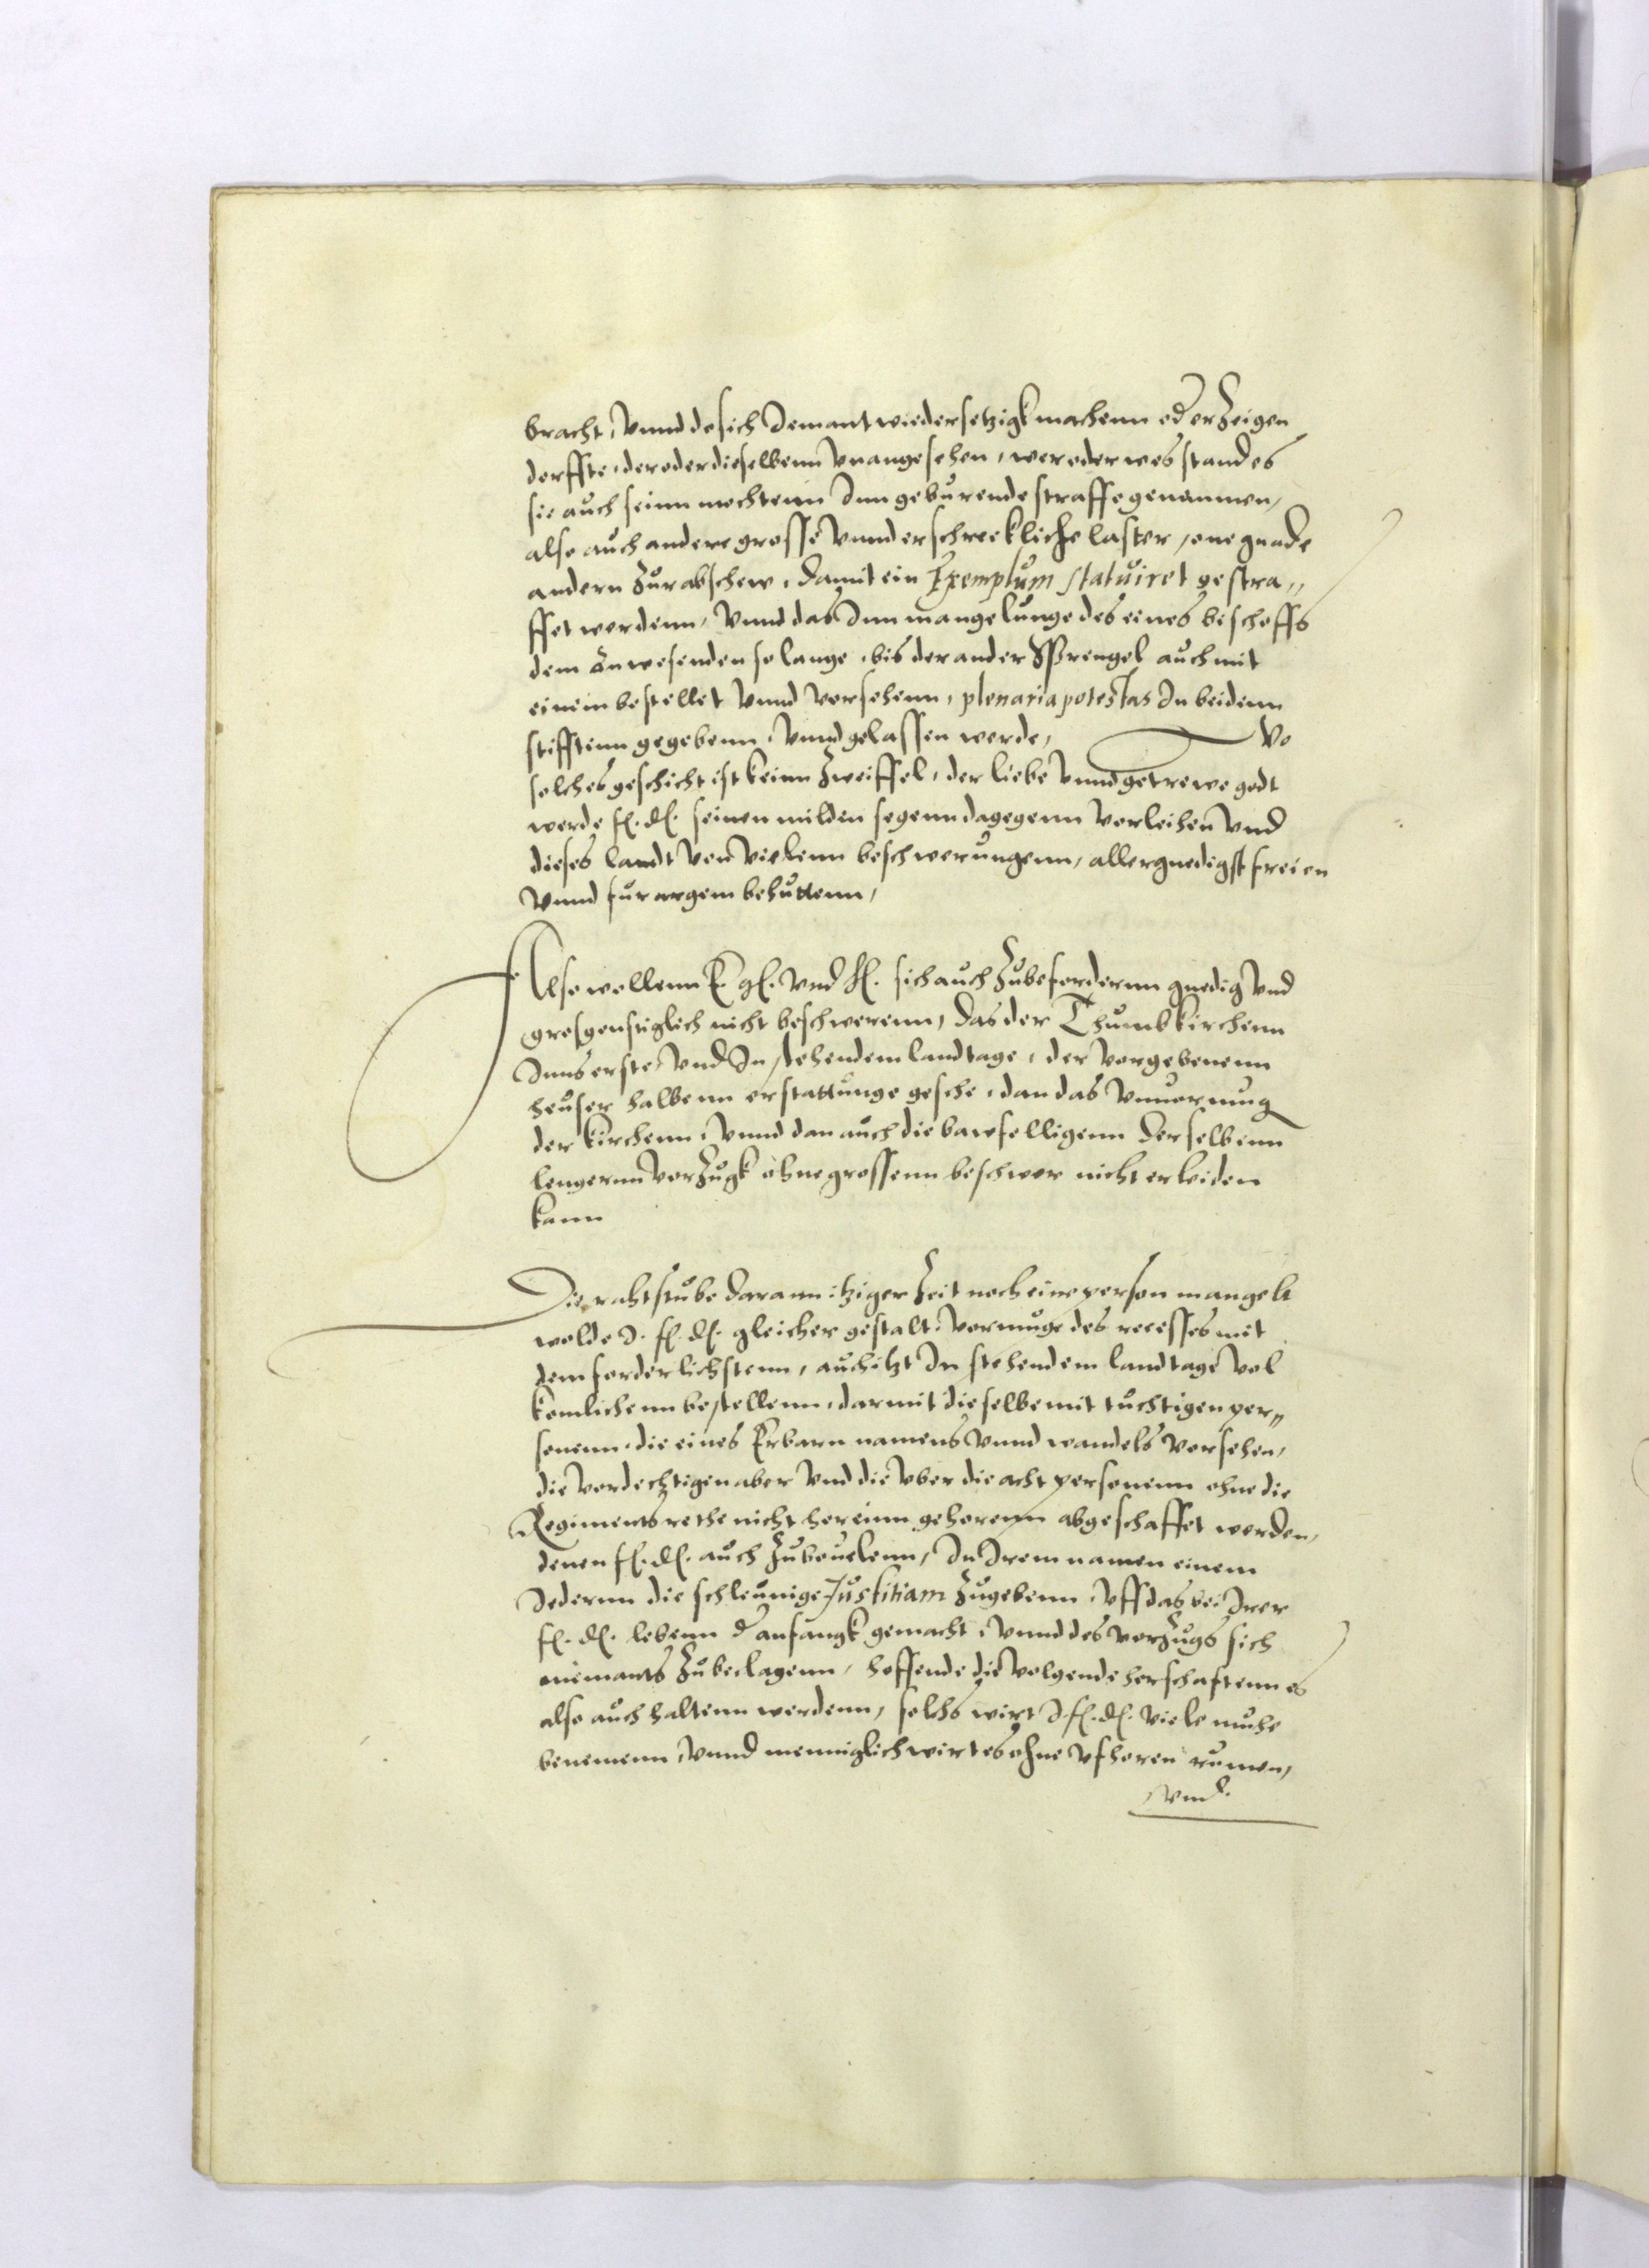 bracht, vnnd do sich Jemant wiedersetzigk machenn od erzeigen
dorffte, der oder dieselbenn vnangesehen, wer oder wes standes
sie auch seinn mochtenn Inn geburende straffe genommen,
also auch andere grosse vnnd erschreckliche laster, one gnade
andern zur abschew, damit ein Exemplum statuiret gestra„
ffet werdenn, vnnd das Inn mangelunge des eines bischoffs
dem anwesenden so lange, bis der ander Sprengel auch mit
einem bestellet vnnd versehenn, plenaria potestas In beidenn
stifftenn gegebenn, vnnd gelassen werde, Wo
solches geschicht ist keinn zweiffel, der liebe vnnd getrewe godt
werde f. d. seinen milden segenn dagegenn verleihen vnd
dieses landt von vielenn beschwerungenn, allergnedigst freien
vnnd fur argem behuttenn,
Also wollenn E. g. vnd h. sich auch zubefordernn gnedig vnd
grosgunstiglich nicht beschwerenn, das der Thumbkirchenn
Inns erste, vnd In stehendem landtage, der vorgebenenn
heuser halbenn erstattunge geschehe, dan das vnuormug
der kirchenn, vnnd dan auch die bawfelligenn derselbenn
lengernn vorzugk ohne grossenn beschwer nicht erleiden
kann
Die rahtstube darann itziger zeit noch eine person mangelt
wolde J. f. d. gleicher gestalt, vormuge des recesses mit
dem forderlichstenn, auch itzt In stehendem landtage vol
komlichenn bestellenn, darmit dieselbe mit tuchtigen per„
sonenn, die eines Erbarn namens vnnd wandels vorsehen,
die vordechtigen aber vnd die vber die acht personenn ohne die
Regiments rethe nicht hereinn gehorenn abgeschaffet werden,
denen f. d. auch zubeuelenn, In Irem namen einem
Jedernn die schleunige Justitiam zugebenn, vff das bei Irer
f. d. lebenn d anfangk gemacht, vnnd des vorzugs sich
niemants zubeclagenn, hoffende die volgende herschafftenn es
also auch haltenn werdenn, solchs wirt J. f. d. viele muhe
benemenn, vnnd menniglich wirt es ohne vfhoren rumen,
vnd